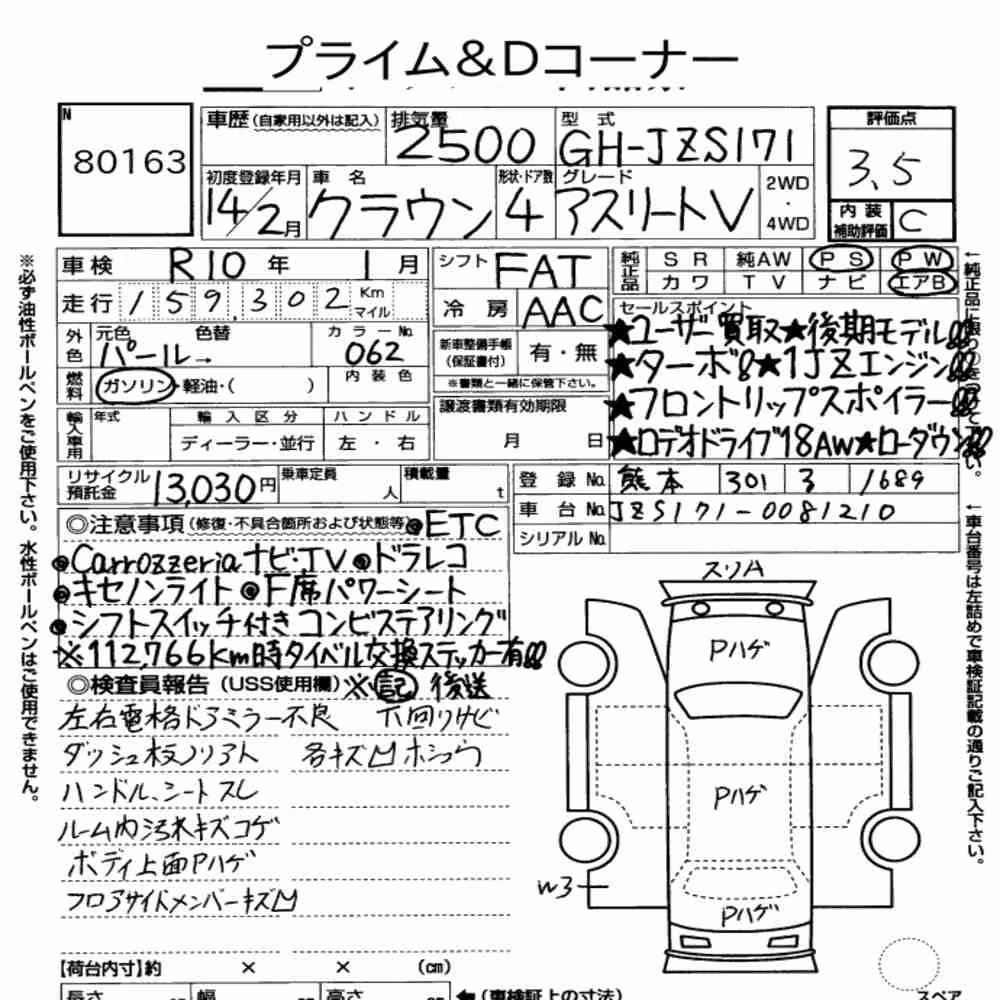 プライム&Dコーナー
N
80163
車歴(自家用以外は記入)
排気量
2500
型式
GH-JZS171
評価点
3.5
初度登録年月
14/2月
車名
クラウン
形状・ドア数
4
グレード
アスリートV
2WD
・
4WD
内装
補助評価
C
車検 R10年 1月
シフト FAT
純正品 SR 純AW PS PW
カワ TV ナビ エアB
走行 159,302 Km
マイル
冷房 AAC
セールスポイント
★ユーザー買取★後期モデル!!
★ターボ!!★1JZエンジン!!
★フロントリップスポイラー!!
★ロデオドライブ18AW★ローダウン!!
外色 元色 色替 カラーNo.
パール→ 062
新車整備手帳
(保証書付)
有・無
※書類と一緒に保管下さい。
燃料 ガソリン・軽油・( )
内装色
譲渡書類有効期限
月 日
輸入車用 年式 輸入区分 ハンドル
ディーラー・並行 左・右
リサイクル
預託金
13,030円
乗車定員
人
積載量
t
登録No. 熊本 301 ﾖ 1689
車台No. JZS171-0081210
シリアルNo.
◎注意事項(修復・不具合箇所および状態等)
◎ETC
◎Carrozzeriaナビ・TV◎ドラレコ
◎キセノンライト◎F席パワーシート
◎シフトスイッチ付きコンビステアリング
※112,766Km時タイベル交換ステッカー有!!
◎検査員報告(USS使用欄)※記後送
左右電格ドアミラー不良 下回りサビ
ダッシュ板ソリアト 各キズ凹ホシュウ
ハンドル、シートスレ
ルーム内汚れキズコゲ
ボディ上面Pハゲ
フロアサイドメンバーキズ凹
【荷台内寸】約 × × (cm)
長さ 幅 高さ
(車検証上の寸法)
スリA
Pハゲ
Pハゲ
W3
Pハゲ
スペア
※必ず油性ボールペンをご使用下さい。水性ボールペンはご使用できません。
←純正品に限り○をつけて下さい。
←車台番号は左詰めで車検証記載の通りご記入下さい。